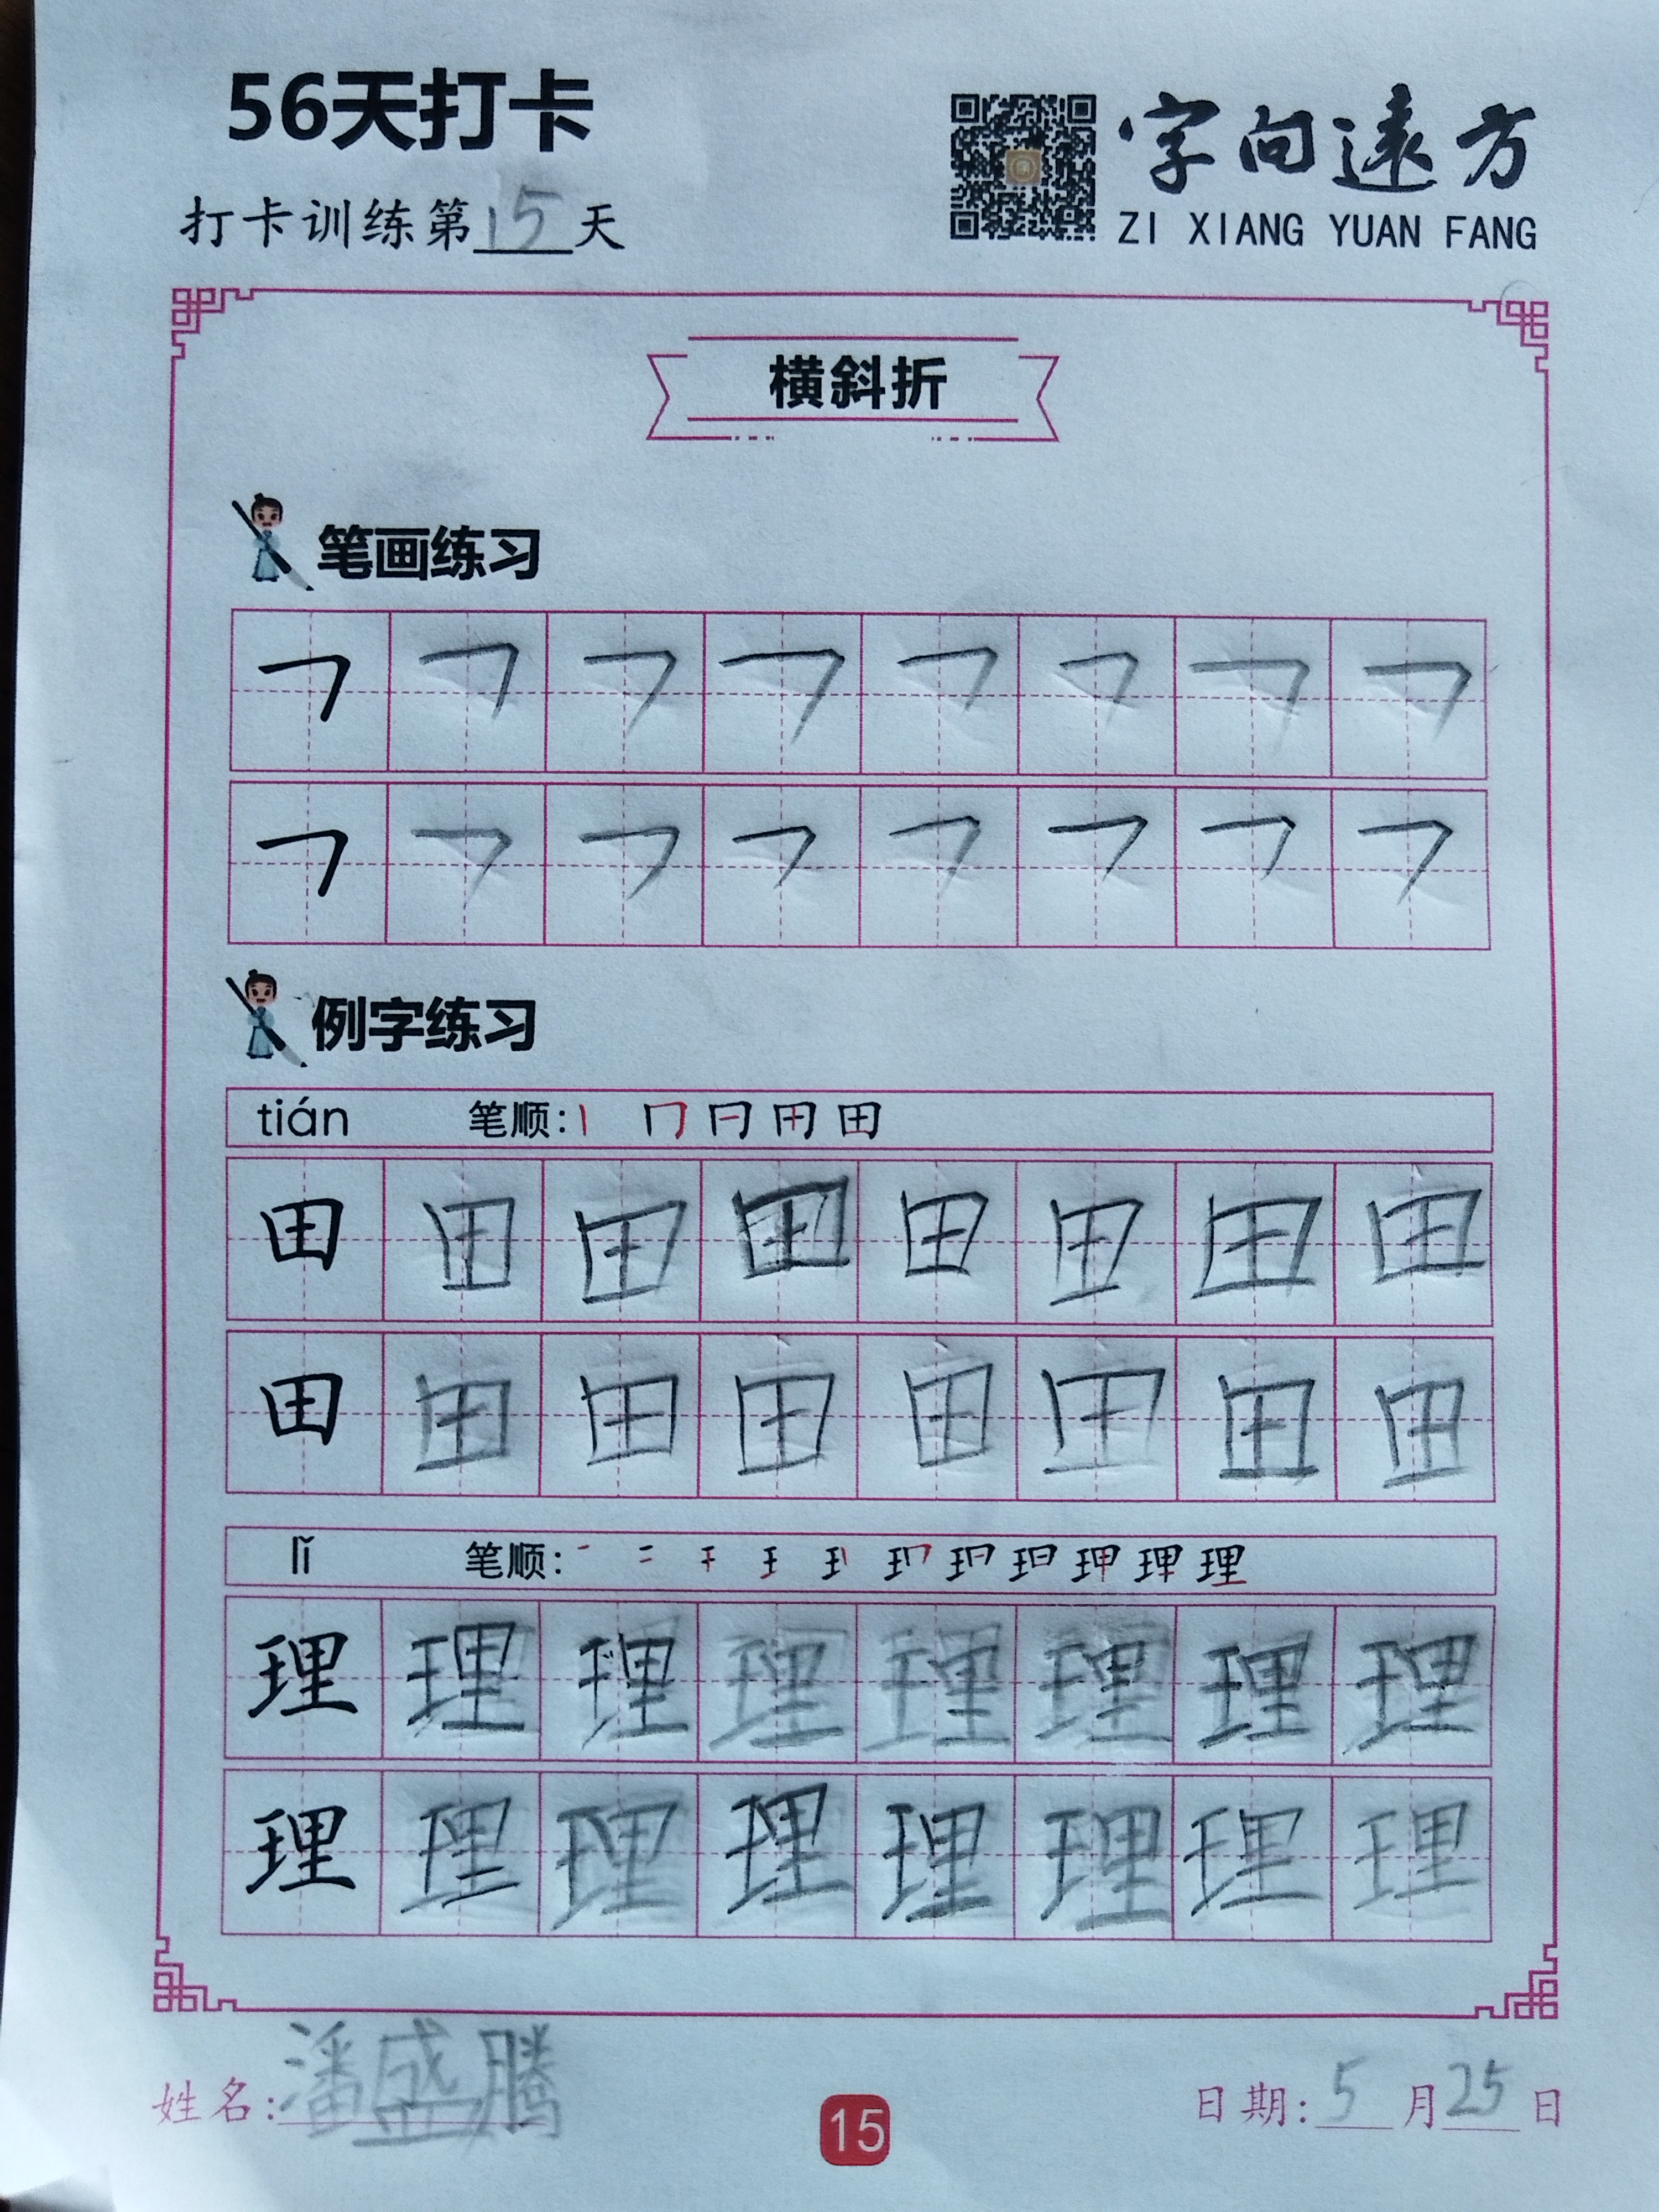 56天打卡
字向遠方
打卡训练第15天
ZI XIANG YUAN FANG
横斜折
笔画练习
㇕ ㇕ ㇕ ㇕ ㇕ ㇕ ㇕ ㇕
㇕ ㇕ ㇕ ㇕ ㇕ ㇕ ㇕ ㇕
例字练习
tián 笔顺:
田 田 田 田 田 田 田 田
田 田 田 田 田 田 田 田
lǐ 笔顺:
理 理 理 理 理 理 理 理
理 理 理 理 理 理 理 理
姓名:潘盛腾
15
日期:5月25日